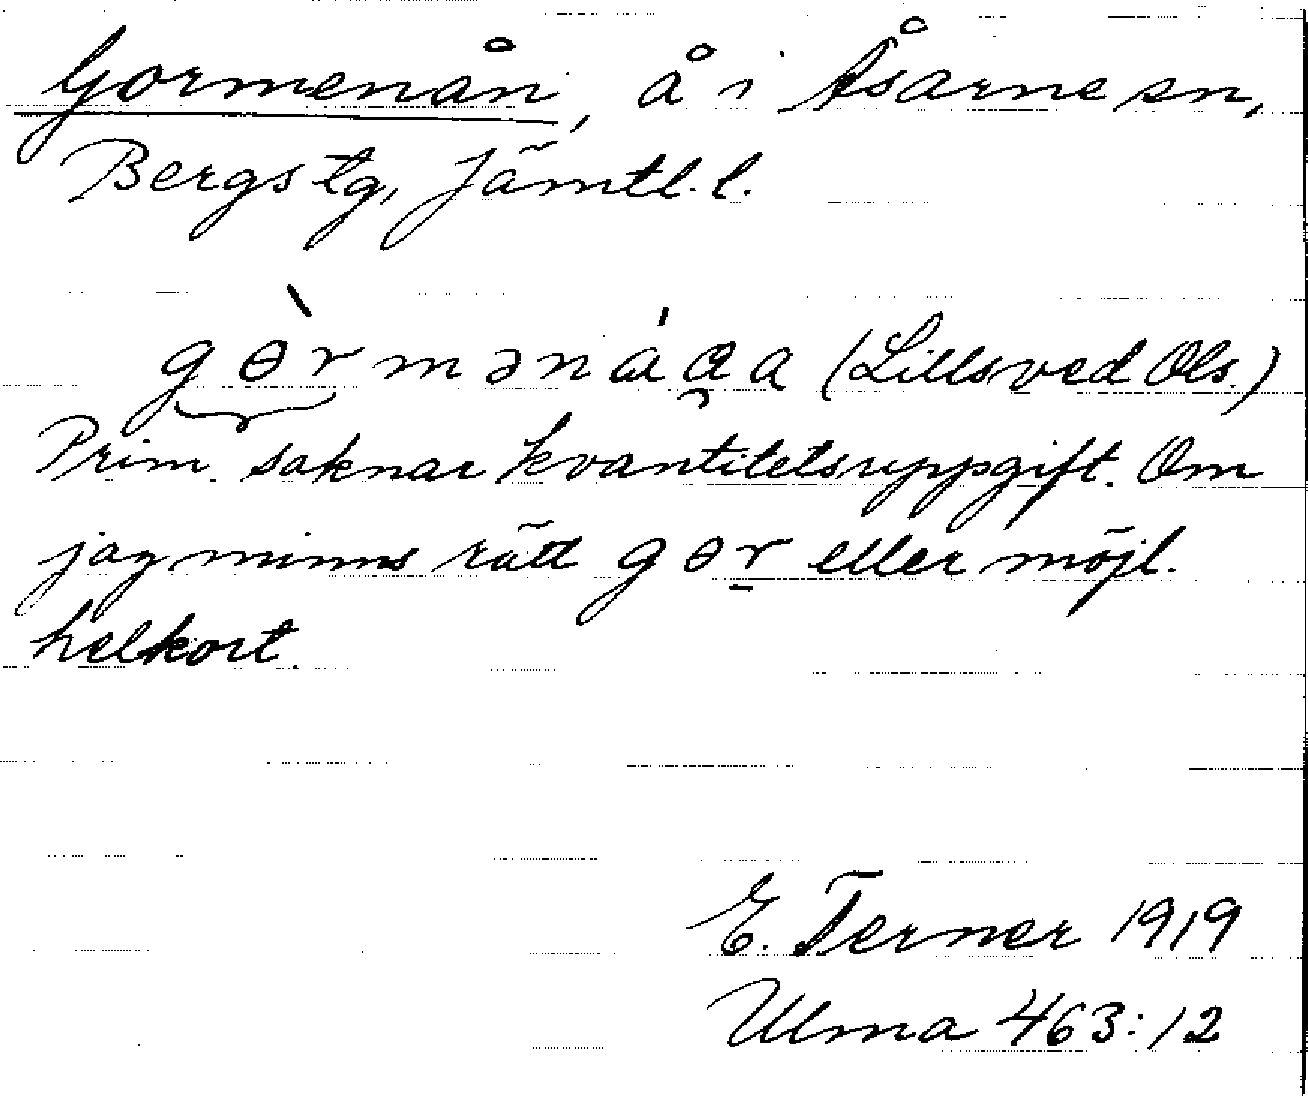 Gormenån, å i Åsarne sn,
Bergs tg, Jämtl. l.
gɵ̀rmənáɑa (Lillsved Ols.)
Prim. saknar kvantitetsuppgift. Om
jag minns rätt gɵr̠ eller möjl.
helkort.
E. Terner 1919
Ulma 463:12